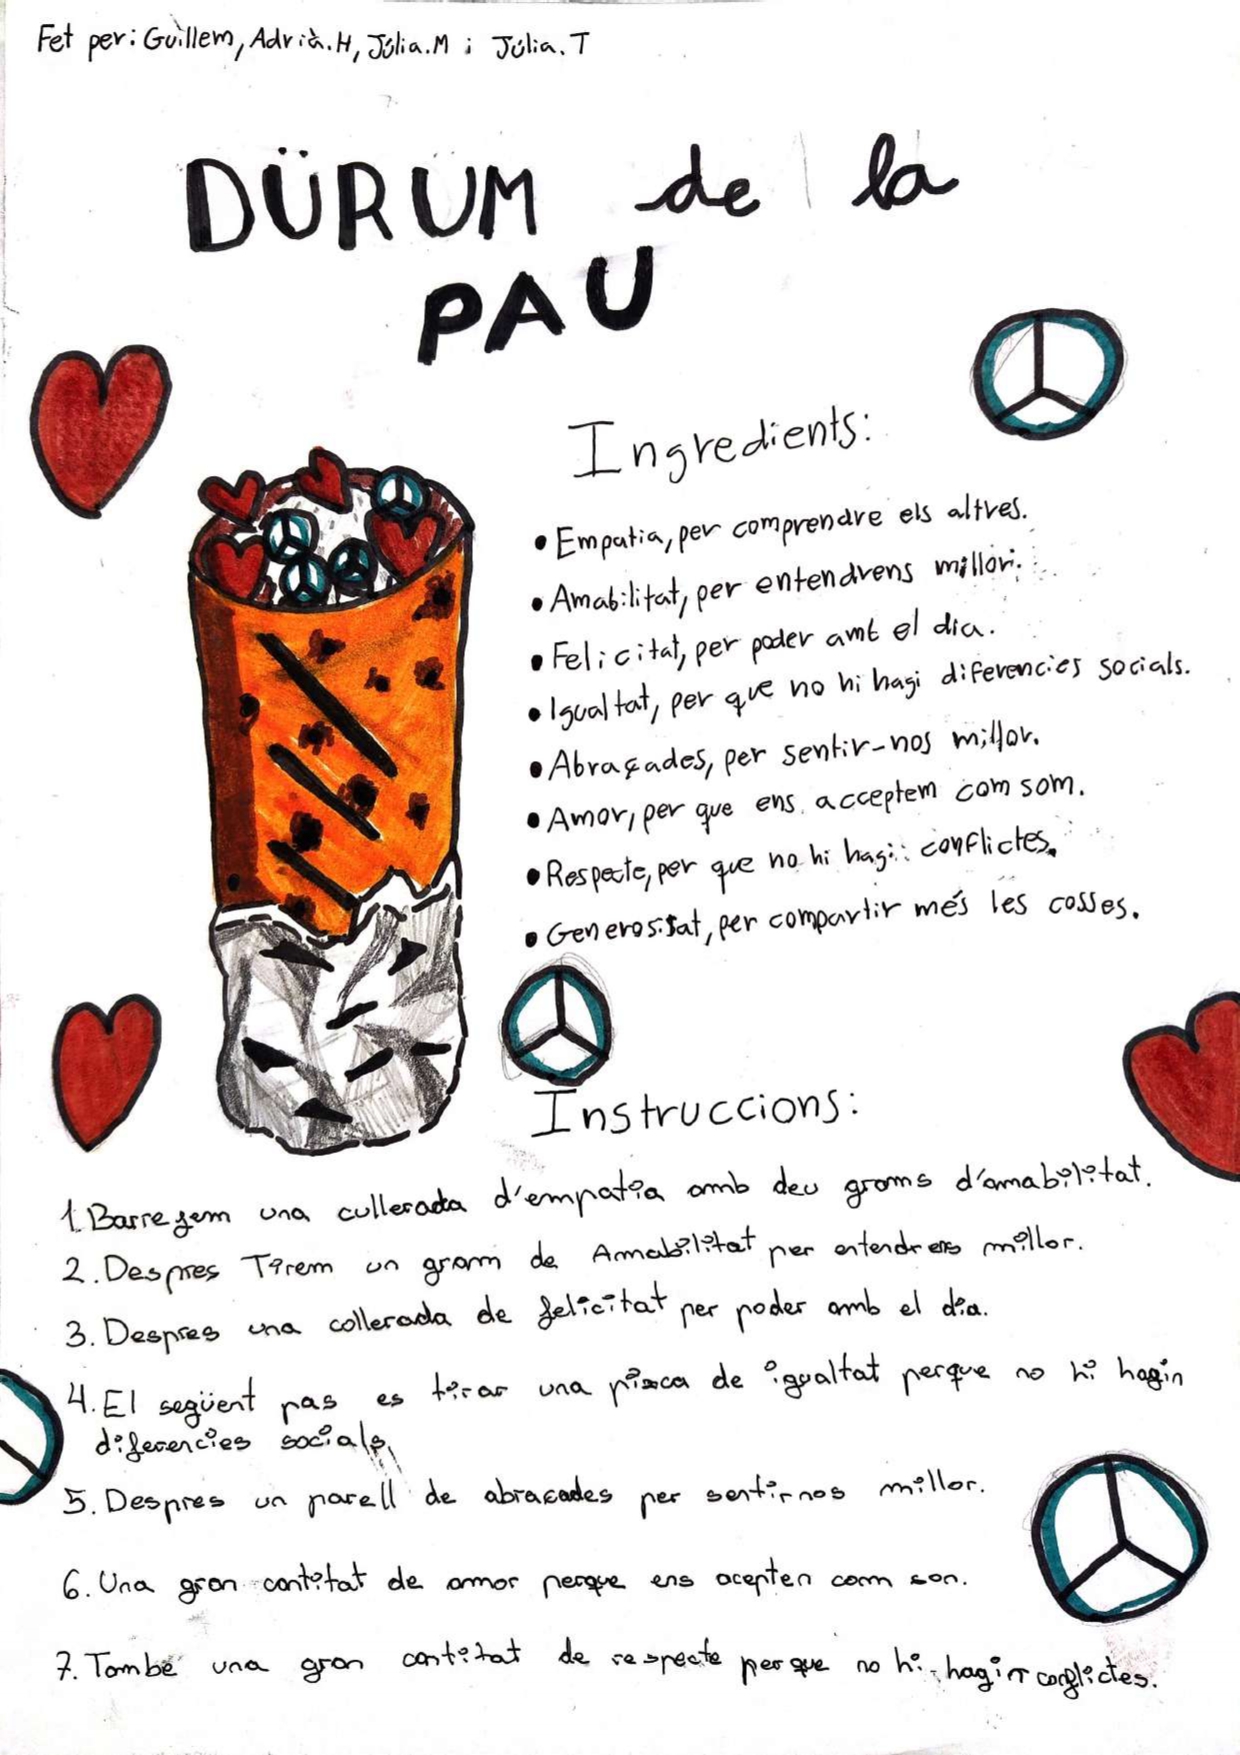 Fet per: Guillem, Adrià.H, Júlia.M i Júlia.T
DÜRUM de la
PAU
Ingredients:
• Empatia, per comprendre els altres.
• Amabilitat, per entendrens millor.
• Felicitat, per poder amb el dia.
• Igualtat, per que no hi hagi diferencies socials.
• Abraçades, per sentir-nos millor.
• Amor, per que ens acceptem com som.
• Respecte, per que no hi hagi conflictes.
• Generositat, per compartir més les cosses.
Instruccions:
1. Barregem una cullerada d'empatia amb deu grams d'amabilitat.
2. Despres Tirem un gram de Amabilitat per entendrens millor.
3. Despres una collerada de felicitat per poder amb el dia.
4. El següent pas es tirar una pizca de igualtat perque no hi hagin
diferencies socials.
5. Despres un parell de abracades per sentirnos millor.
6. Una gran cantitat de amor perque ens acepten com son.
7. També una gran cantitat de respecte perque no hi hagin conflictes.